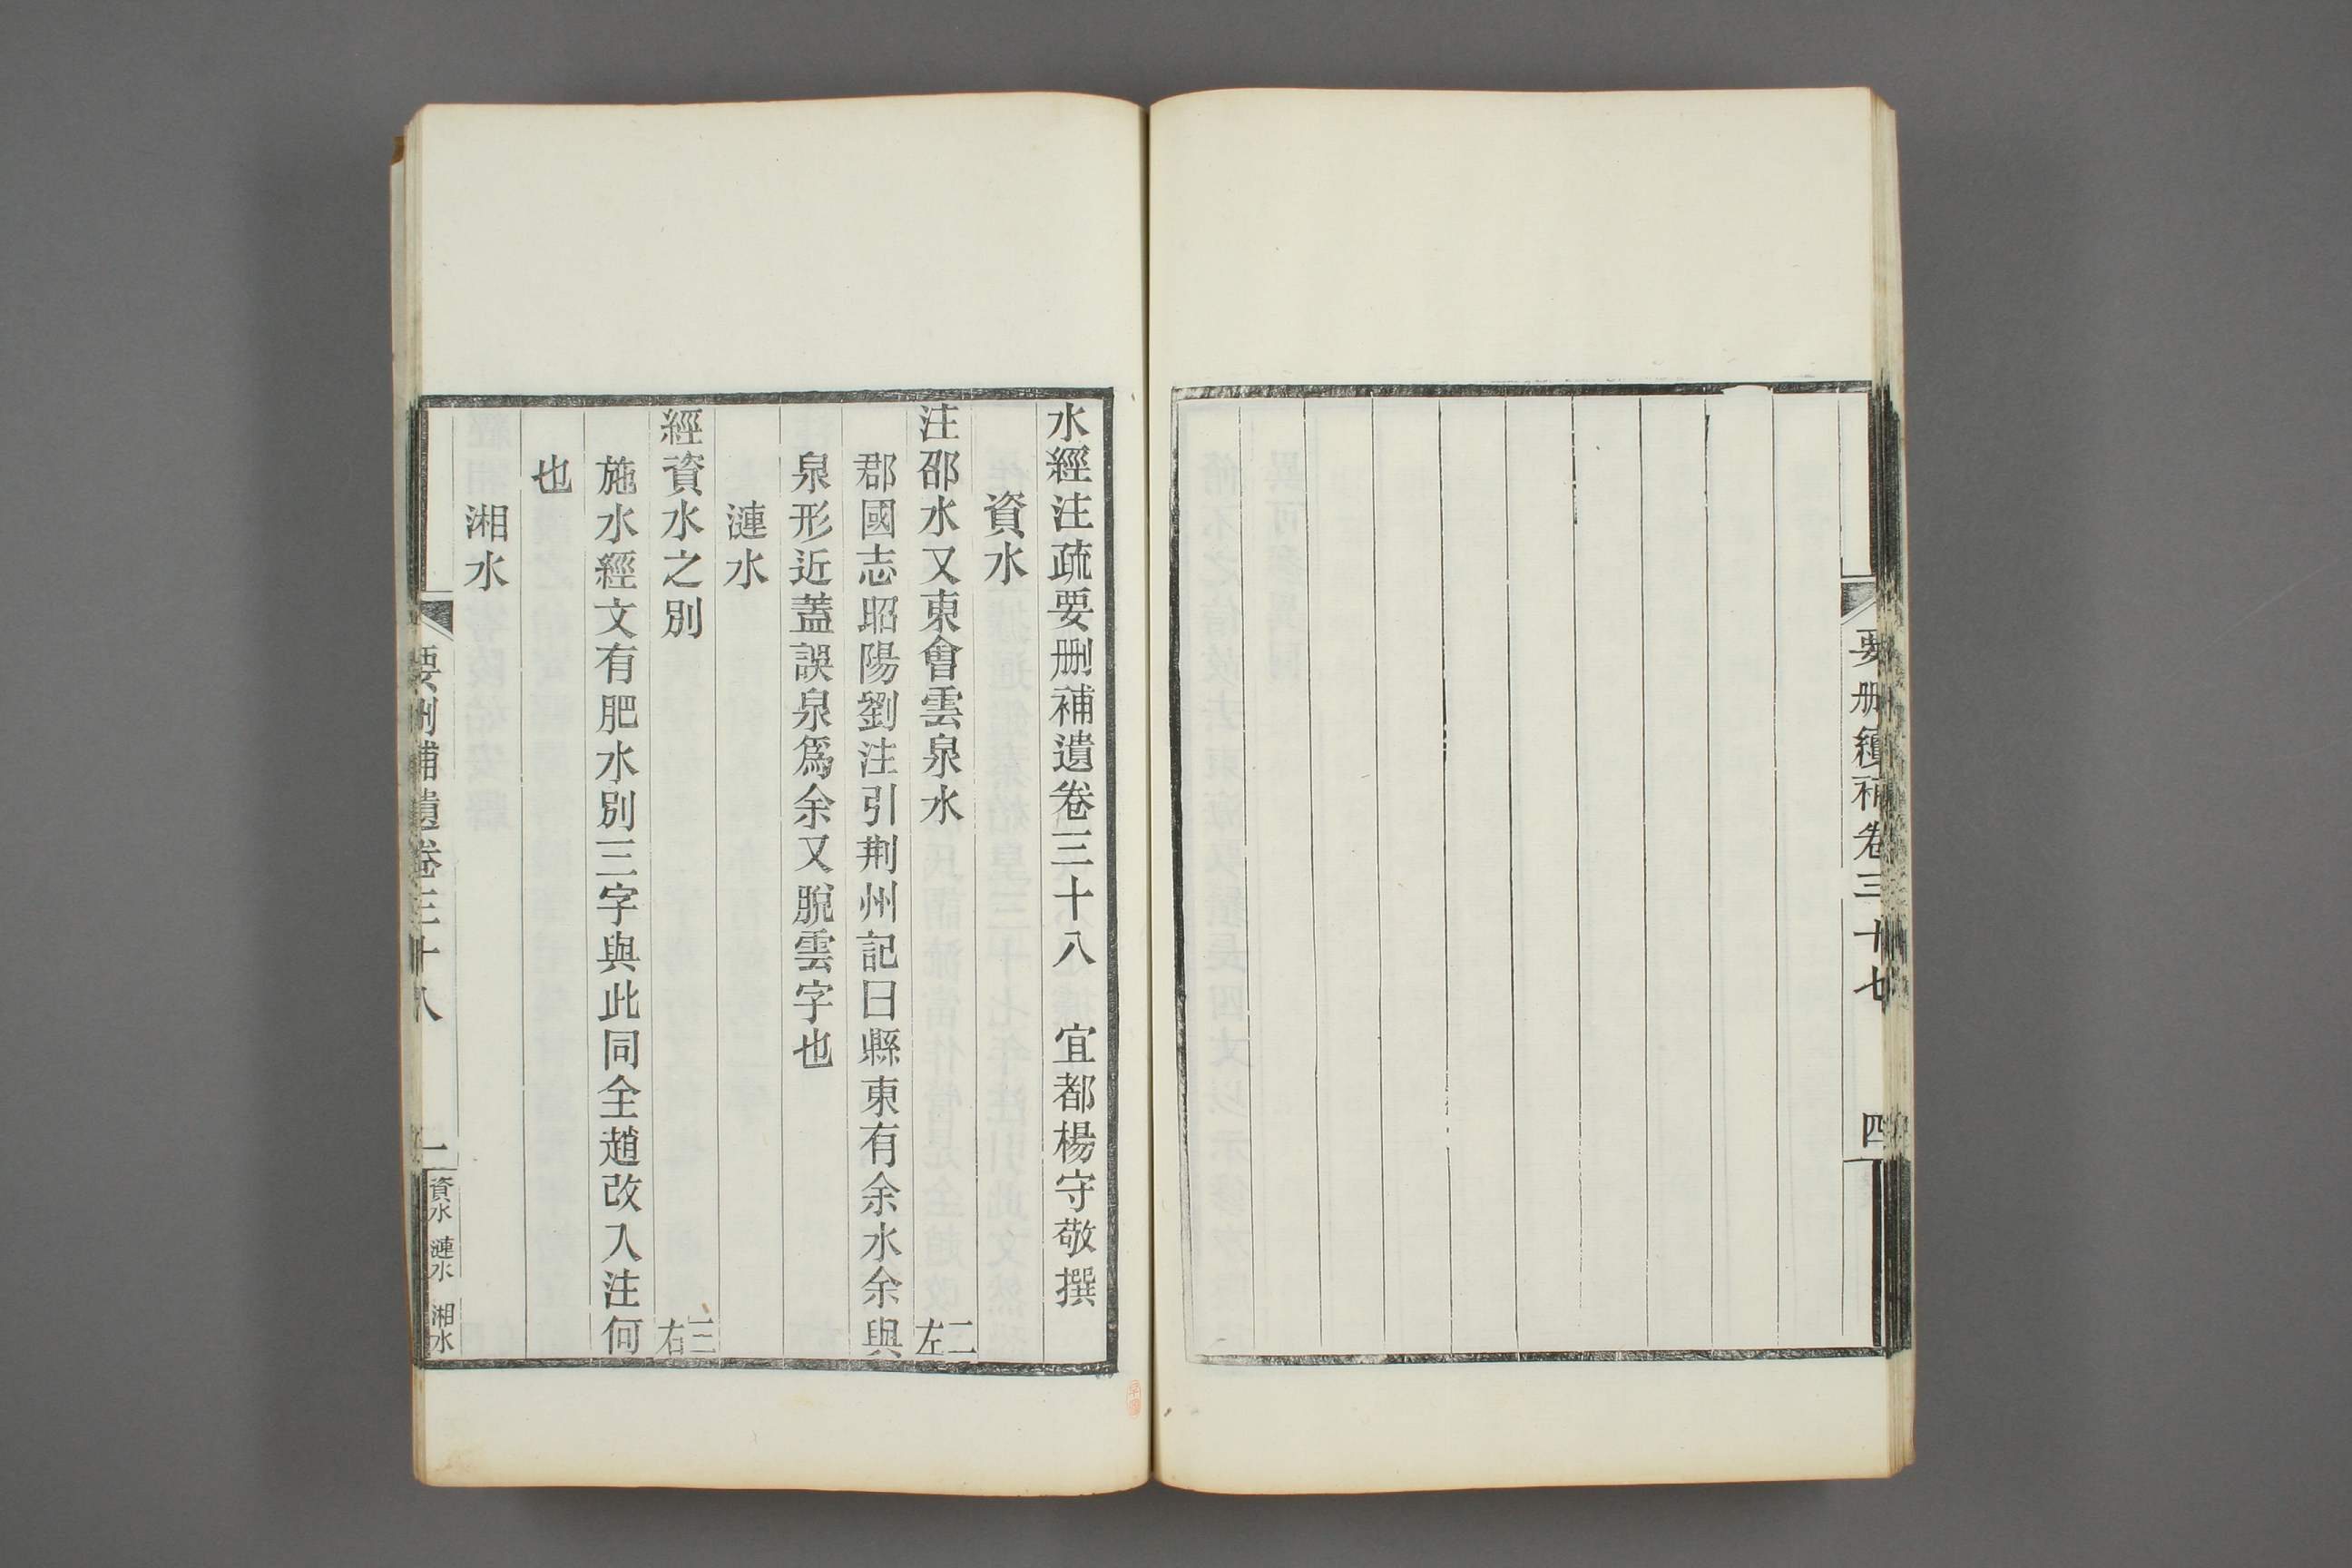 要刪續補卷三十七
四
水經注疏要刪補遺卷三十八 宜都楊守敬撰
資水
注邵水又東會雲泉水 二左
郡國志昭陽劉注引荆州記曰縣東有余水余與
泉形近蓋誤泉爲余又脫雲字也
漣水
經資水之別 三右
施水經文有肥水別三字與此同全趙改入注何
也
湘水
要刪補遺卷三十八
一
資水 漣水 湘水